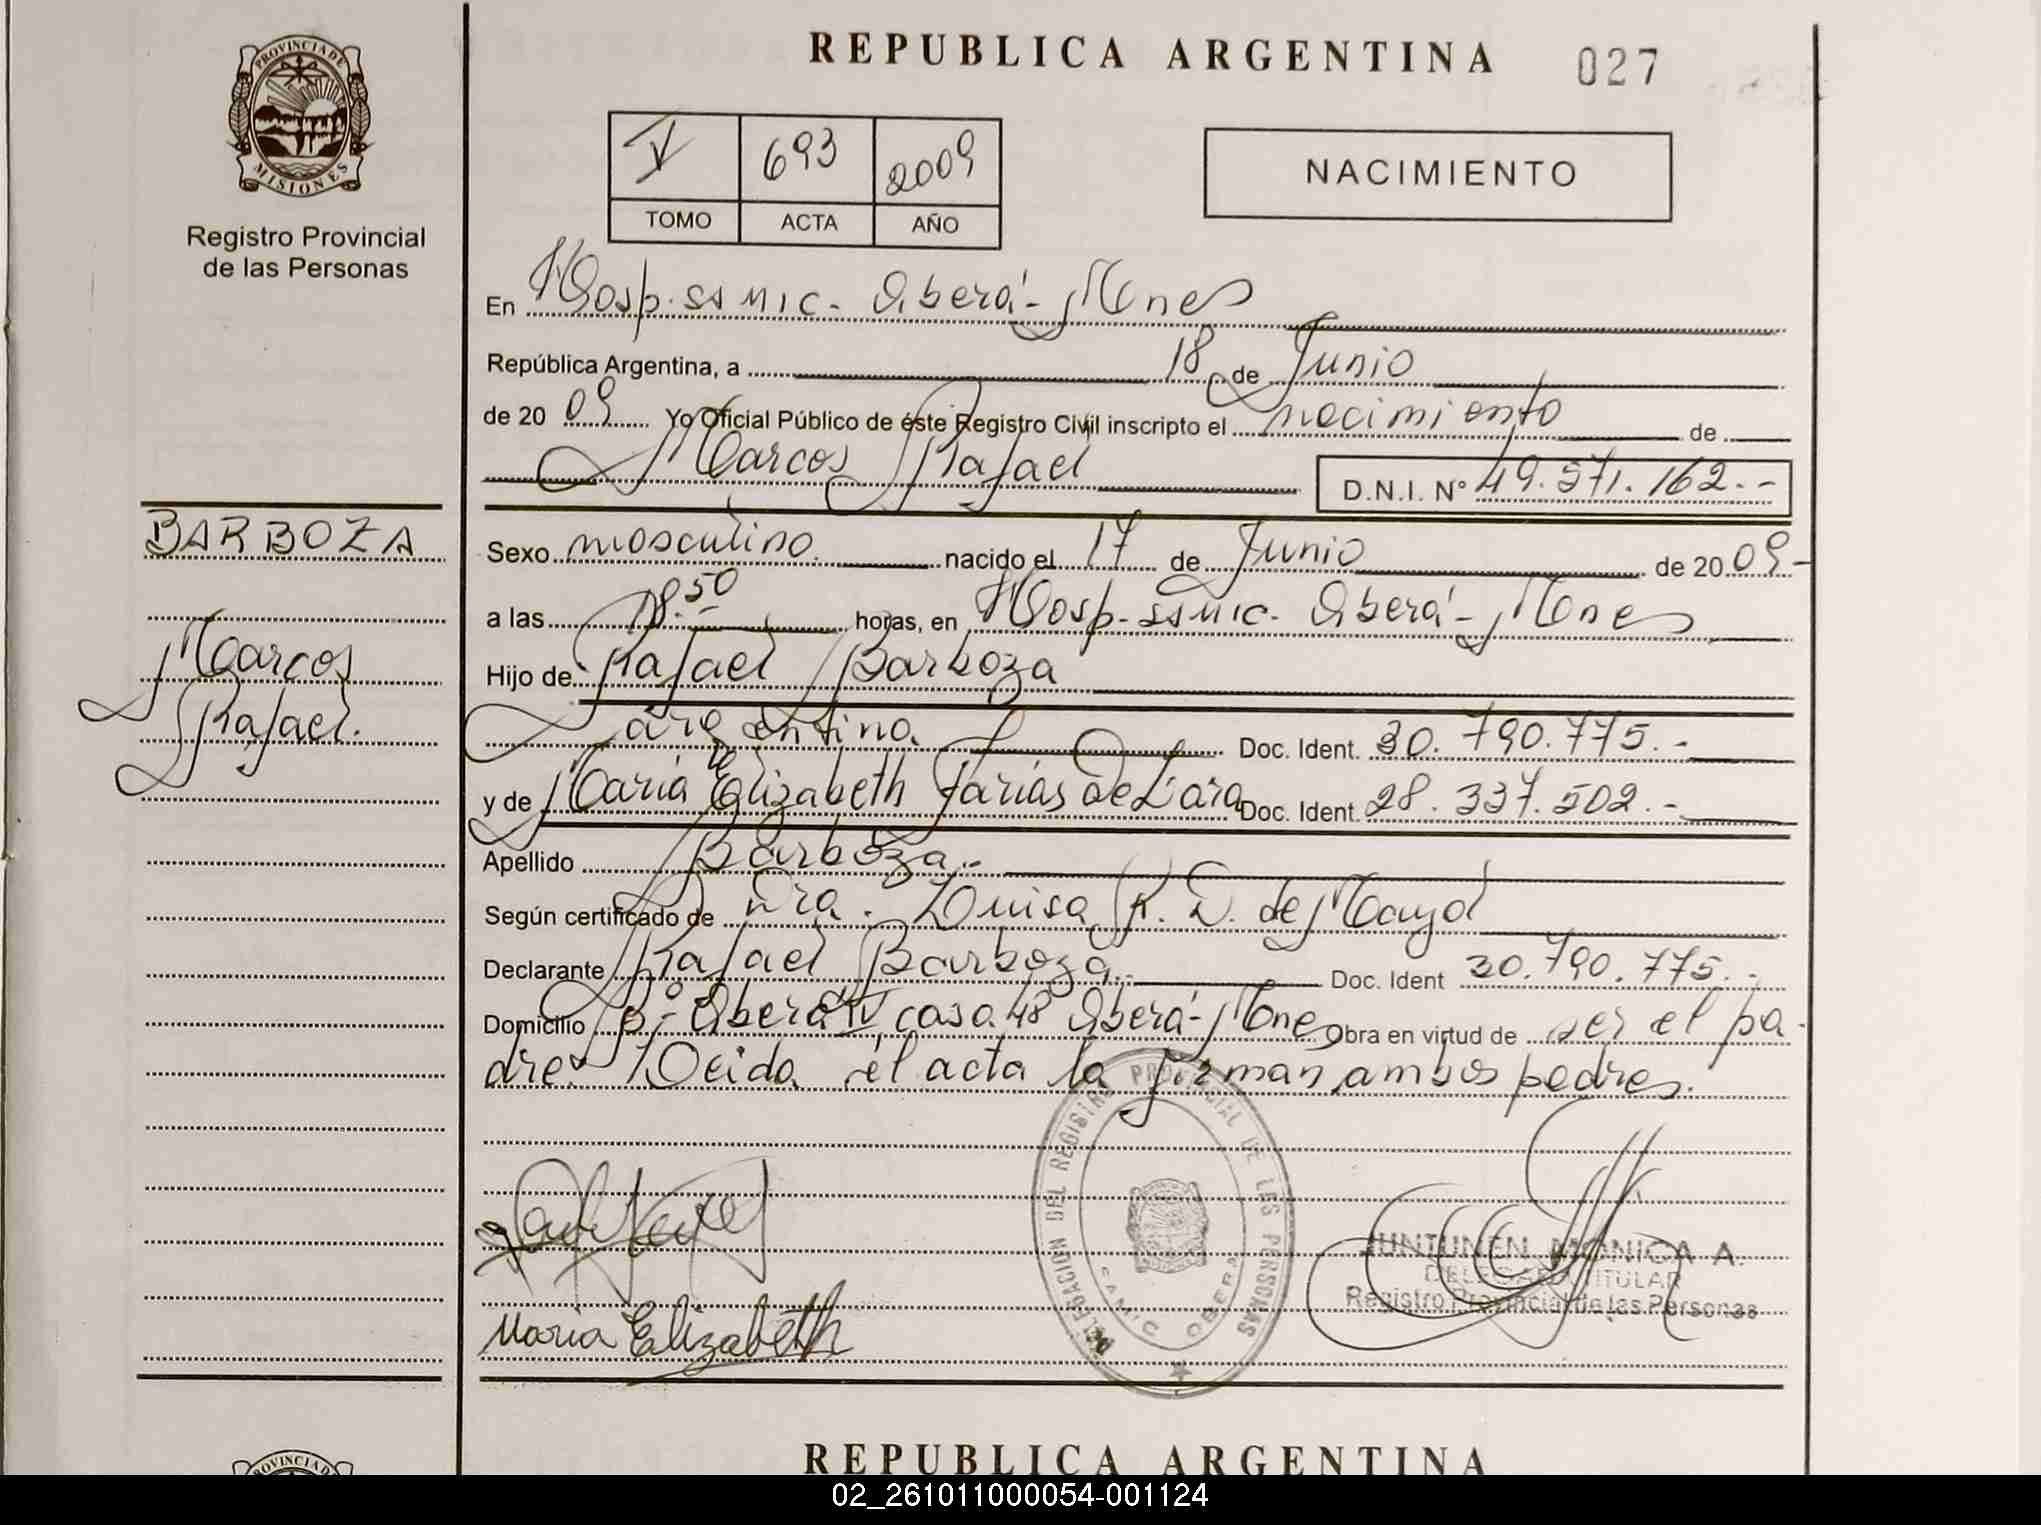 PROVINCIA DE
MISIONES
Registro Provincial
de las Personas
REPUBLICA ARGENTINA 027
V 693 2009
TOMO ACTA AÑO
NACIMIENTO
En Hosp. SAMIC - Oberá - Mnes
República Argentina, a 18 de Junio
de 2009 Yo Oficial Público de éste Registro Civil inscripto el nacimiento de
Marcos Rafael D.N.I. Nº 49.571.162.-
BARBOZA
Marcos
Rafael.
Sexo masculino. nacido el 17 de Junio de 2009-
a las 18.50 horas, en Hosp - SAMIC - Oberá - Mnes
Hijo de Rafael Barboza
argentino. Doc. Ident. 30.790.775.-
y de Maria Elizabeth Farias De Lara Doc. Ident. 28.337.502.-
Apellido Barboza.-
Según certificado de Dra. Luisa R. D. de
Declarante Rafael Barboza.- Doc. Ident 30.790.775.-
Domicilio Bº - Oberá IV casa 48 Oberá - Mnes Obra en virtud de ser el pa-
dre. Leida el acta la firman ambos padres.
DELEGACION DEL REGISTRO PROVINCIAL DE LAS PERSONAS
SAMIC OBERA
Maria Elizabeth
JUNTUNEN MONICA A.
DELEGADA TITULAR
Registro Provincial de las Personas
PROVINCIA D
REPUBLICA ARGENTINA
02_261011000054-001124